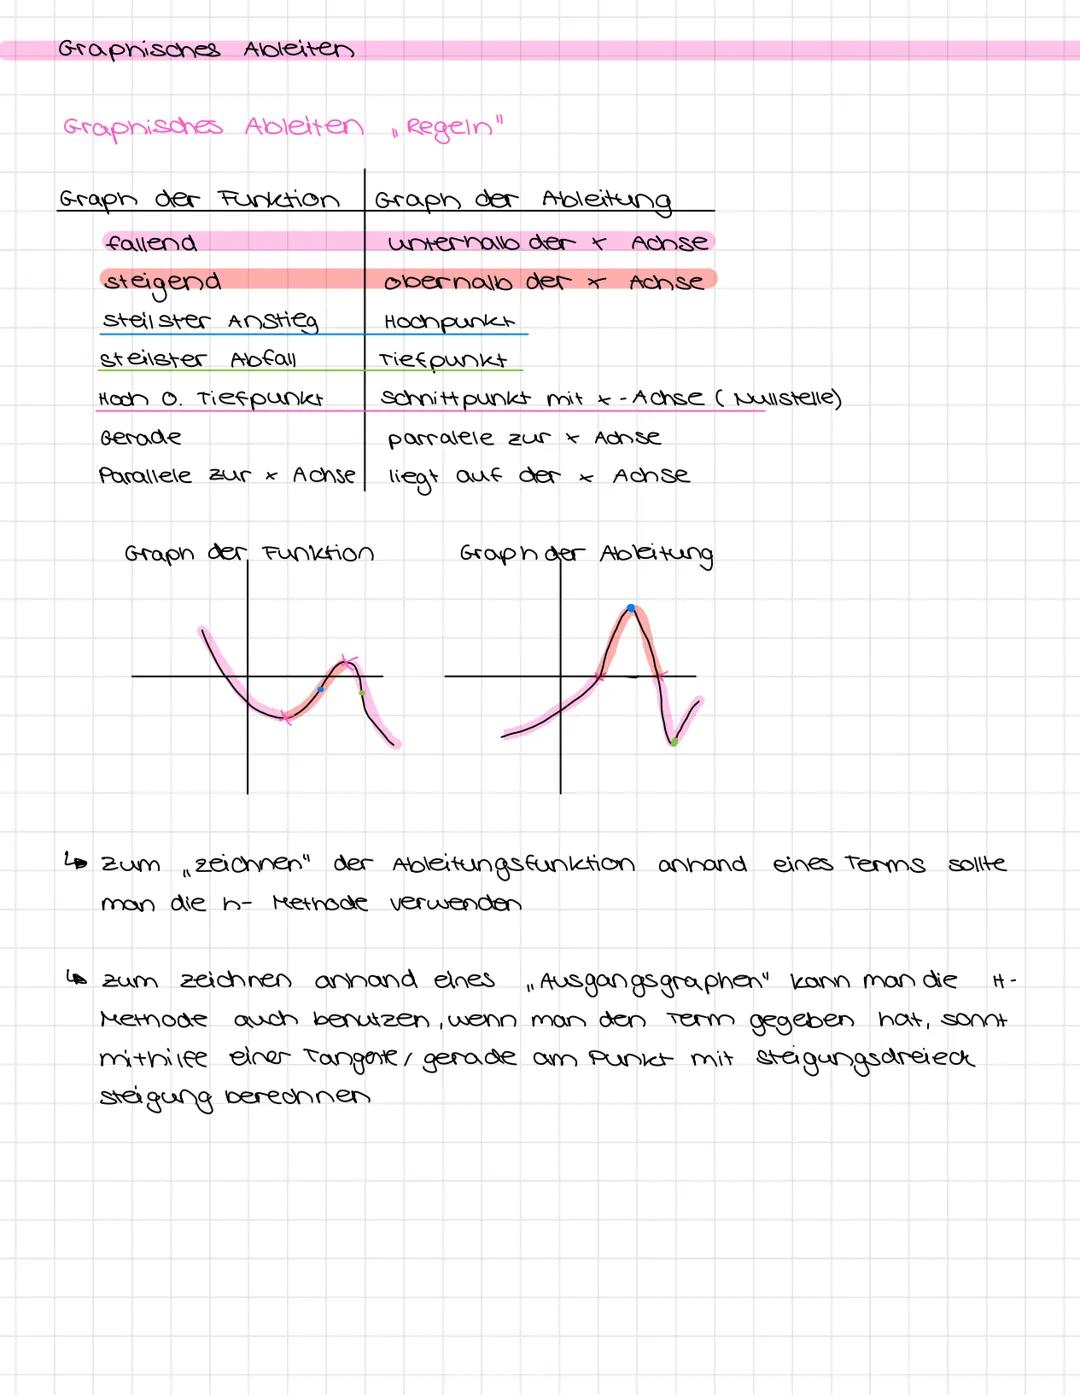 Graphisches Ableiten
Graphisches Ableiten „Regeln"
Graph der Funktion | Graph der Ableitung
fallend | unterhalb der x Achse
steigend | oberhalb der x Achse
steilster Anstieg | Hochpunkt
steilster Abfall | Tiefpunkt
Hoch o. Tiefpunkt | Schnittpunkt mit x-Achse (Nullstelle)
Gerade | parralele zur x Achse
Parallele zur x Achse | liegt auf der x Achse
Graph der Funktion Graph der Ableitung
↳ zum „zeichnen" der Ableitungsfunktion anhand eines Terms sollte
man die h- Methode verwenden
↳ zum zeichnen anhand eines „Ausgangsgraphen" kann man die H-
Methode auch benutzen, wenn man den Term gegeben hat, sonnt
mithilfe einer Tangete/ gerade am Punkt mit steigungsdreieck
steigung berechnen